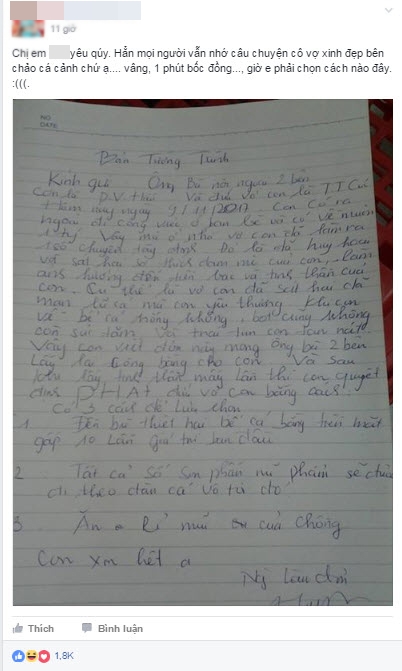 11 giờ
Chị em yêu qúy. Hẳn mọi người vẫn nhớ câu chuyện cô vợ xinh đẹp bên
chảo cá cảnh chứ ạ.... vâng, 1 phút bốc đồng..., giờ e phải chọn cách nào đây.
:(((.
NO
DATE
Bản Tường Trình
Kính gửi Ông Bà nội ngoại 2 bên
Con là D.V Thái Và đưa vợ con là T.T Cúc
Hôm nay ngày 9/11/2017 Con có ra
ngoài đi công việc ở bên lề và có về muộn
1 tý Vậy mà ở nhà vợ con đã làm ra
1 số chuyện tày đình Đó là đã huỷ hoại
và sát hại vô thức đam mê của con, làm
ảnh hưởng đến tiền bạc và tinh thần của
con. Cụ thể là vợ con đã sát hại dã
man lũ cá mà con yêu thương. Khi con
về bể cá không bơi cũng không
còn sủi tăm Với trái tim con tan nát
Vậy con viết đơn này mong ông bà 2 bên
Lấy lại công bằng cho con Và sau
khi lấy tinh thần mấy lần thì con quyết
định PHẠT đưa vợ con bằng cách
Có 3 cách để lựa chọn
1. Đền bù thiệt hại bể cá bằng tiền mặt
gấp 10 lần giá trị ban đầu
2 Tất cả số sơn phấn mỹ phẩm sẽ
đi theo đàn cá vô tù đó
3. Ăn = mũi của Chồng
Con xin hết ạ
Ng làm đơn
Thích
Bình luận
1,8K